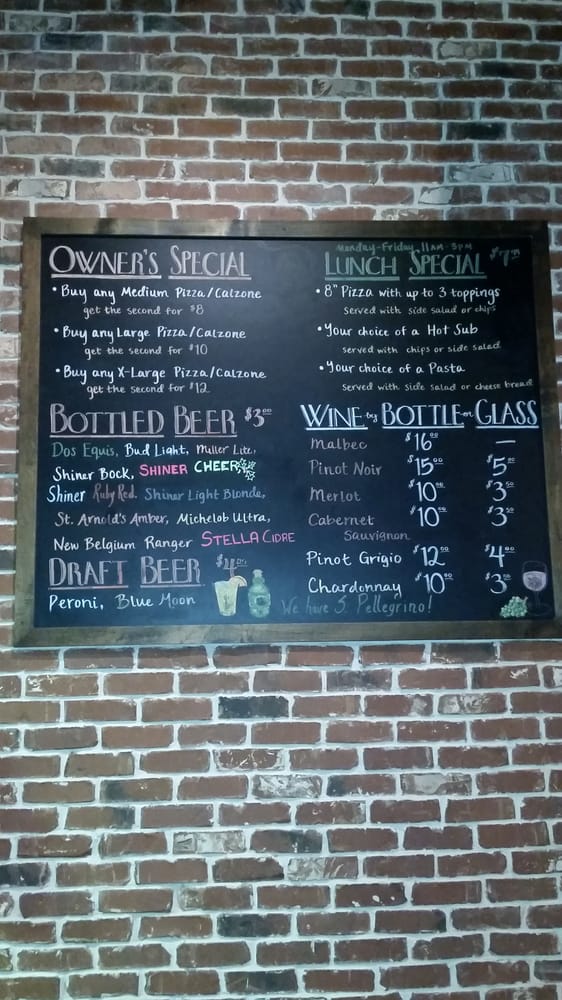 OWNER'S SPECIAL
• Buy any Medium Pizza/Calzone
get the second for $8
• Buy any Large Pizza/Calzone
get the second for $10
• Buy any X-Large Pizza/Calzone
get the second for $12
Monday-Friday 11AM-3PM
LUNCH SPECIAL
• 8" Pizza with up to 3 toppings
served with side salad or chips
• Your choice of a Hot Sub
served with chips or side salad
• Your choice of a Pasta
served with side salad or cheese bread
BOTTLED BEER $3.00
Dos Equis, Bud Light, Miller Lite,
Shiner Bock, SHINER CHEER,
Shiner Ruby Red, Shiner Light Blonde,
St. Arnold's Amber, Michelob Ultra,
New Belgium Ranger STELLA CIDRE
DRAFT BEER $4.00
Peroni, Blue Moon
WINE by BOTTLE or GLASS
Malbec $16.00 —
Pinot Noir $15.00 $5.00
Merlot $10.00 $3.50
Cabernet $10.00 $3.50
Sauvignon
Pinot Grigio $12.00 $4.00
Chardonnay $10.00 $3.50
We have S. Pellegrino!